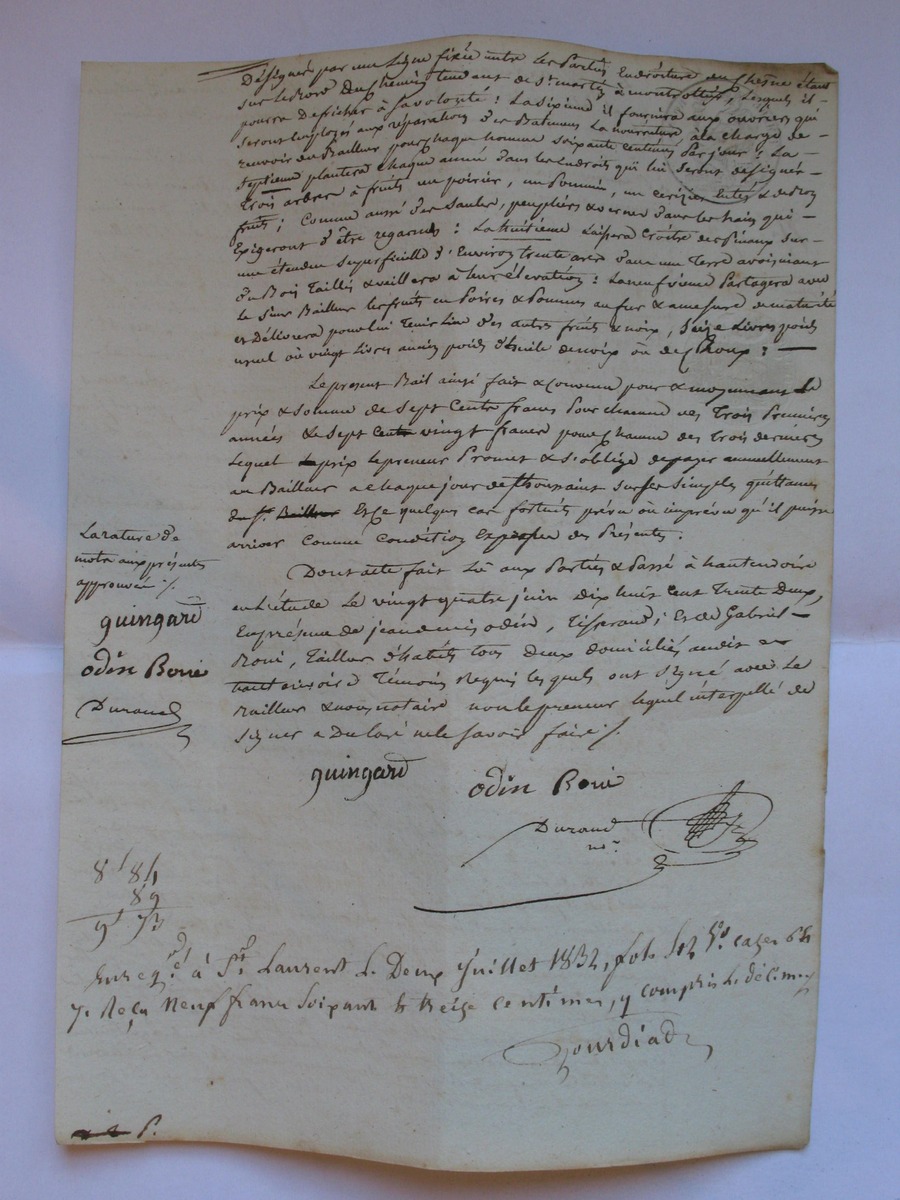 Désignés par une ligne fixée entre les Parties En droiture du Chesne étant
sur le Bord du Chemin tendant de St. martin à montrottier, lesquels il -
pourra Defricher à sa volonté : La sixieme il fournira aux ouvriers qui
seront employés aux réparations des Batimens La nourriture à la charge de -
recevoir du Bailleur pour chaque homme soixante centimes Par jour : La -
septieme plantera chaque année dans les Endroits qui lui seront désignés -
Trois arbres à fruits un poirier, un Pommier, un cerisier Entés & de Bon
fruits ; Comme aussi des saules, peupliers & vernes dans les haies qui -
Exigeront d'être regarnies : La huitieme Laissera Croître des Pineaux sur -
une étendue superficielle d'Environ trente ares dans une Terre avoisinant
du Bois Taillis & veillera à leur élevation : La neuvieme Partagera avec
le Sieur Bailleur les fruits en Poires & Pommes au fur & a mesure de maturité
et Délivrera pour lui Tenir Lieu des autres fruits & noix, seize Livres poids
usuel où vingt Livres ancien poids d'huile de noix où de Choux : —
Le present Bail ainsi fait & Convenu pour & moyennant le
prix & somme de sept Cents francs Pour chacune des Trois Premières
années & de sept Cents vingt francs pour Chacune des Trois dernières
Lequel prix le preneur Promet & s'oblige de payer annuellement
au Bailleur a chaque jour de Thoussaint sur ses simples quittances
du sr. Bailleur Et ce quelques cas fortuits prévu où imprévu qu'il puisse
arriver Comme Condition Expresse des Présentes.
Dont acte fait Lû aux Parties & Passé à hauterivoire
en l'étude Le vingt quatre juin dix huit cent Trente Deux,
En présence de jean denis odin, Tisserand ; Et de Gabriel -
Boué, Tailleur d'habits tous deux domiciliés audit -
hauterivoire Témoins Requis lesquels ont signé avec Le
Bailleur & nous notaire non le preneur lequel interpellé de
signer a Déclaré ne le savoir faire /.
La rature de
mots aux présentes
approuvée /.
guingard
odin Boué
Durand
guingard
odin Boué
Durand
nre.
8' 84
89
9' 73
Enregtré. à St. Laurent Le Deux Juillet 1832, folo 
7. Reçu Neuf francs Soixante & treize centimes, y compris Le décime,
Gourdiad